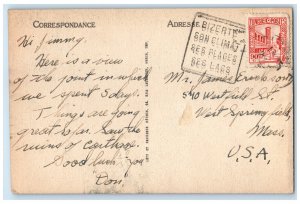 CORRESPONDANCE
ADRESSE
BIZERTE
SON CLIMAT
SES PLAGES
SES LACS
TUNISIE
POSTES
Hi Jimmy
Here is a view
of the point in which
we spent 5 days.
Things are going
great so far. Saw the
ruins of Carthage.
Good luck "you
"Don"
Mr. James
540 Westfield St.
West Springfield,
Mass.
U.S.A.